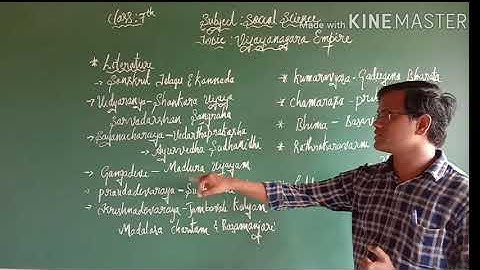 Class: 7th
Subject - Social Science
Made with KINEMASTER
Topic : Vijayanagara Empire
* Literature
→ Sanskrit Telagu & Kannada
→ Vidyaranya - Shankara Vijaya
Sarvadarshan Sangraha
→ Sayanacharaya - Vedarthaprakasha
→ Ayurvedha Sudhanidhi
→ Gangadevi - Madhura Vijayam
→ praudadevaraya -
→ Krishnadevaraya - Jambavati Kalyan
Madalasa Charitam & Rasamanjari
* Kumaravyasa - Gadugina Bharata
* Chamarasa -
* Bhima -
* Rathnakaravarni